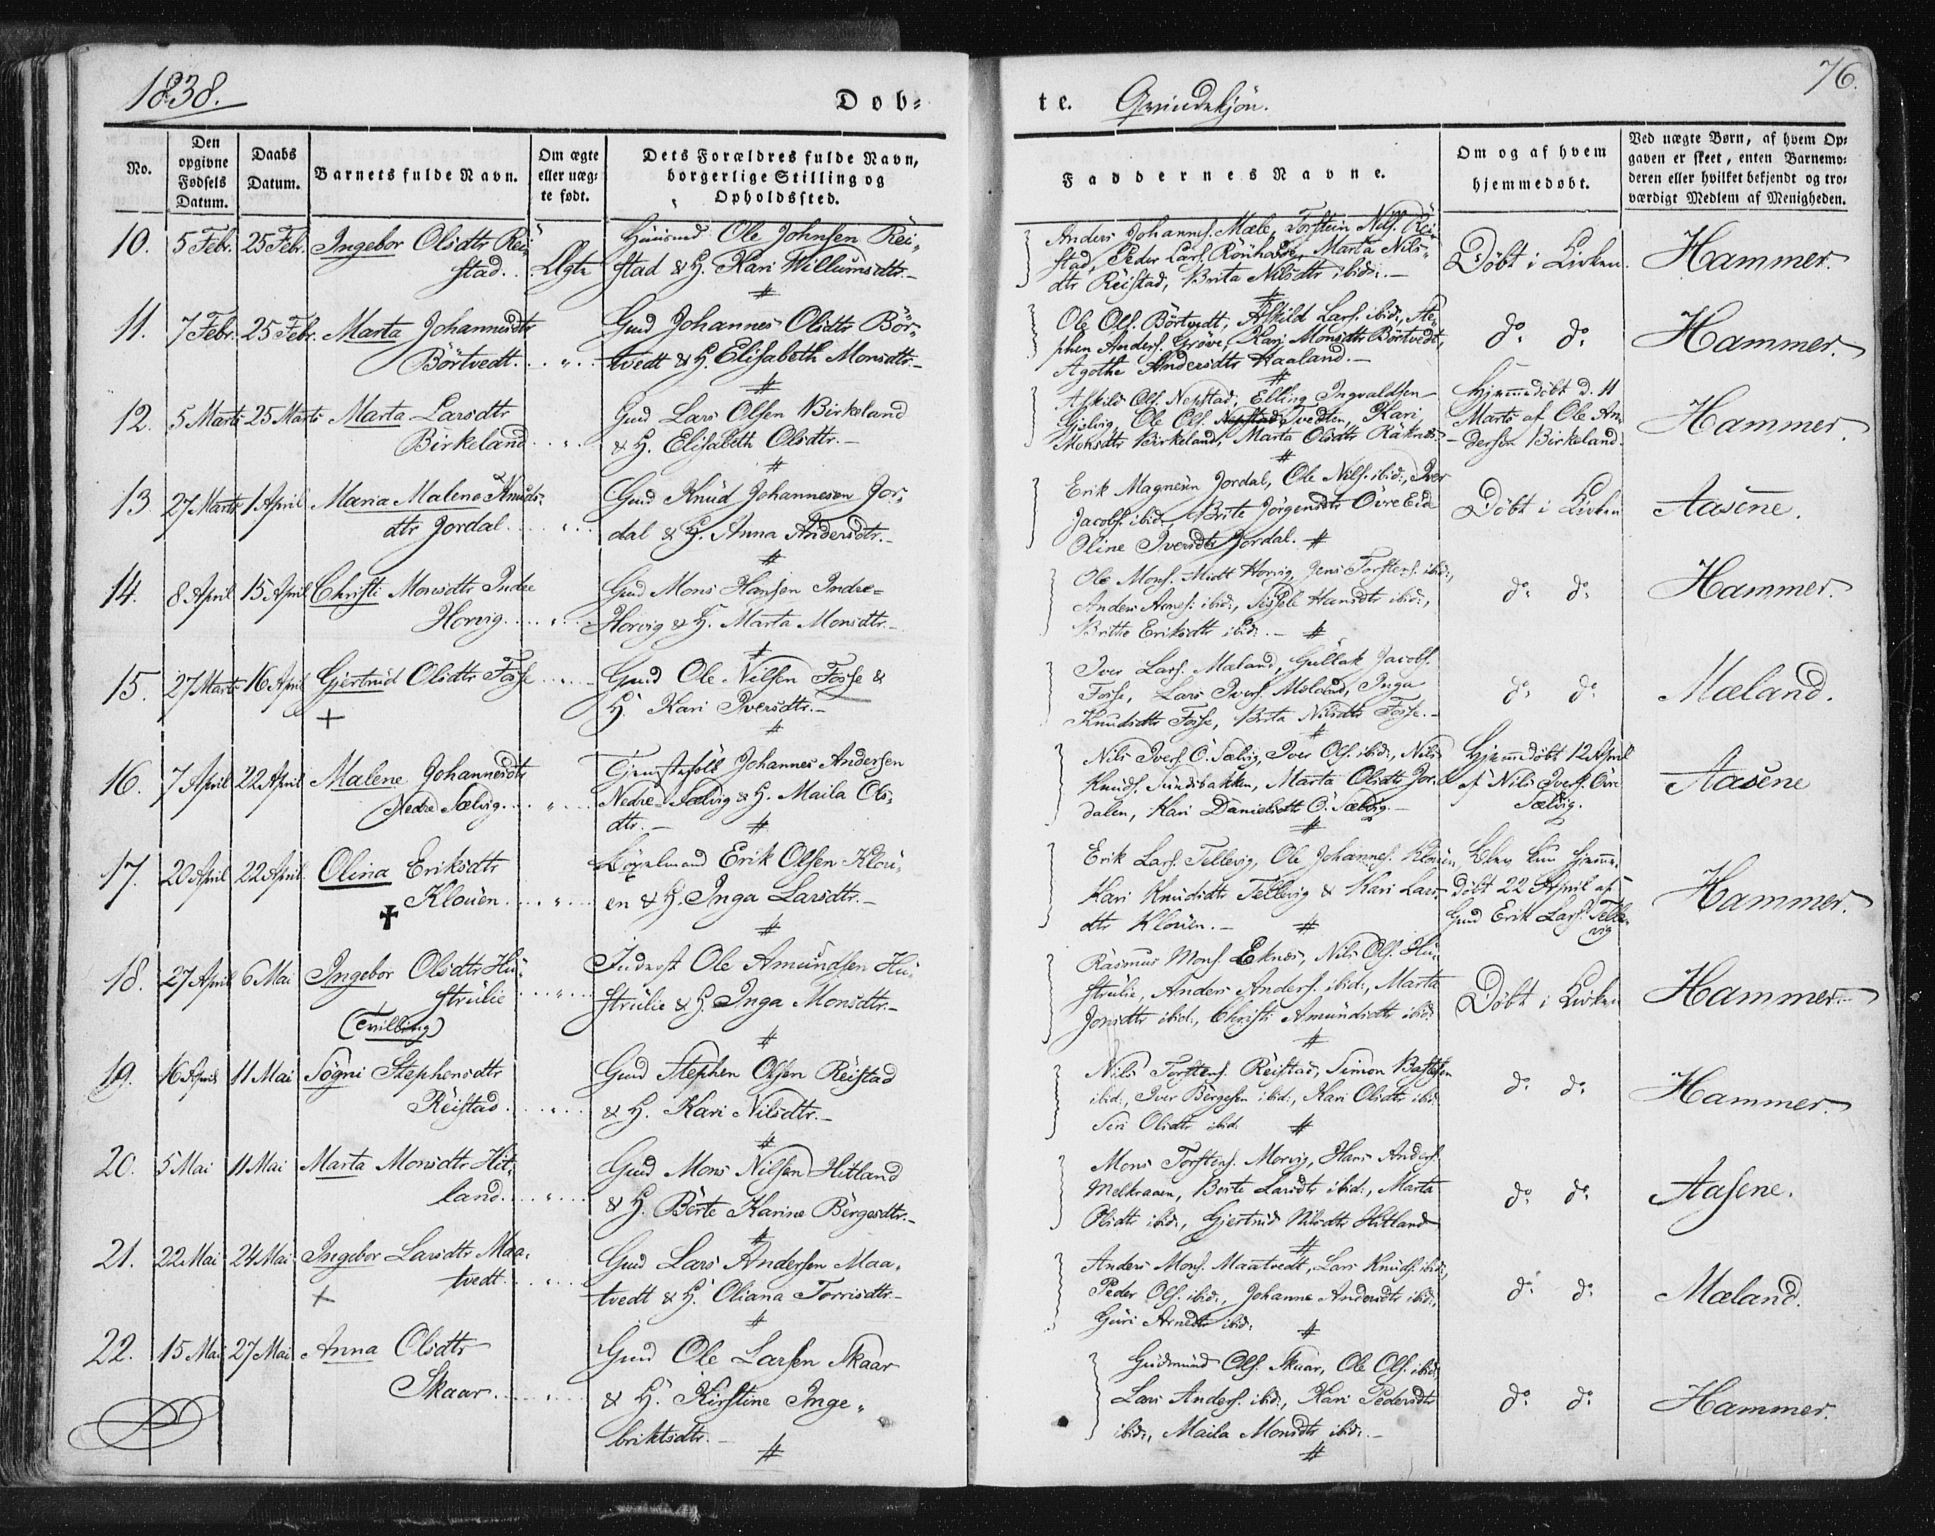 1838.
Døb-
te. Qvindekjøn.
76.
No.
Den opgivne Fødsels Datum.
Daabs Datum.
Barnets fulde Navn.
Om ægte eller uæg-
te født.
Dets Forældres fulde Navn,
borgerlige Stilling og
Opholdssted.
Faddernes Navne.
Om og af hvem
hjemmedøbt.
Ved uægte Børn, af hvem Op-
gaven er skeet, enten Barnemo-
deren eller hvilket bekjendt og tro-
værdigt Medlem af Menigheden.
10. 5 Febr. 25 Febr. Ingebor Olsdtr Rei-
stad. Ægte
Huusmd Ole Johnsen Rei-
stad & H. Kari Willumsdtr.-
Anders Johannes. Mæle, Torstein Nils. Rei-
stad, Peder Lars. Rönhovde, Marta Nils-
dtr Reistad, Brita Nilsdtr ibid:-
Döbt i Kirken.
Hammer.
11. 7 Febr. 25 Febr. Marta Johannesdtr
Börtvedt. "
Gmd Johannes Olsdtr Bör-
tvedt & H. Elisabeth Monsdtr.-
Ole Ols. Börtvedt, Askild Lars. ibid:, Ste-
phen Anders. Gröve, Kari Monsdtr Börtvedt,
Agothe Andersdtr Haaland.-
do. do.
Hammer.
12. 5 Marts 25 Marts Marta Larsdtr
Birkeland "
Gmd Lars Olsen Birkeland
& H. Elisabeth Olsdtr.-
Askild Ols. Nepstad, Elling Ingvaldsen
Gjelvig, Ole Ols. Nepstad Tvedten, Kari
Monsdtr Birkeland, Marta Olsdtr Räknes
Hjemmedöbt d. 11
Marts af Ole An-
dersen Birkeland.
Hammer.
13 27 Marts 1 April Maria Malene Knuds-
dtr Jordal. "
Gmd Knud Johannesen Jor-
dal & H. Anna Andersdtr.-
Erik Magnesen Jordal, Ole Nils. ibid:, Iver
Jacobs. ibid:, Brite Jörgensdtr Övre Eide
Oline Iversdtr Jordal.
Döbt i Kirken
Aasene.
14. 8 April 15 April Christi Monsdtr Indre
Horvig. "
Gmd Mons Hansen Indre-
Horvig & H. Marta Monsdtr.-
Ole Mons. Midt Horvig, Jens Torstens. ibid:,
Anders Arnes. ibid:, Sissele Hansdtr ibid:,
Brithe Eriksdtr ibid:.-
do. do.
Hammer.
15. 27 Marts 16 April Gjertrud Olsdtr Fosse "
Gmd Ole Nilsen Fosse &
H. Kari Iversdtr.-
Iver Lars. Mæland, Gullak Jacobs.
Fosse, Lars Ivers. Mæland, Inga
Knudsdtr Fosse, Brita Nilsdtr Fosse.-
do. do.
Mæland.
16. 7 April 22 April Malene Johannesdtr
Nedre Sælvig. "
Tjenestefolk Johannes Andersen
Nedre Sælvig & H. Maila Ols-
dtr.-
Nils Ivers. Ö. Sælvig, Iver Ols. ibid:, Nils
Knuds. Sundsbakken, Marta Olsdtr Jor-
dalen, Kari Danielsdtr Ö. Sælvig.-
Hjemmedöbt 12 April
af Nils Ivers. Övre
Sælvig.
Aasene
17. 20 April 22 April Olina Eriksdtr
Klouen. "
Erik Olsen Klou-
en & H. Inga Larsdtr.-
Erik Lars. Tellevig, Ole Johannes. Klouen,
Kari Knudsdtr Tellevig & Kari Lars-
dtr Klouen.-
Blev kun hjemme-
döbt 22 April af
Gmd Erik Lars. Telle-
vig
Hammer.
18. 27 April 6 Mai Ingebor Olsdtr Hu-
strulie "
(Tvilling)
Inderst Ole Amundsen Hu-
strulie & H. Inga Monsdtr.-
Rasmus Mons. Eknes, Nils Ols. Hu-
strulie, Anders Anders. ibid:, Marta
Jonsdtr ibid:, Christi Amundsdtr ibid:
Döbt i Kirken
Hammer.
19. 16 April 11 Mai Sögni Stephensdtr
Reistad. "
Gmd Stephen Olsen Reistad
& H. Kari Nilsdtr.-
Nils Torstens. Reistad, Simon
ibid:, Iver Börgesen ibid:, Kari Olsdtr ibid:
Siri Olsdtr ibid.
do. do.
Hammer.
20. 5 Mai 11 Mai Marta Monsdtr Hit-
land. "
Gmd Mons Nilsen Hitland
& H. Berte Karine Börgesdtr.-
Mons Torstens. Morvig, Hans Anders.
Melkraaen, Berte Larsdtr ibid:, Marta
Olsdtr ibid:, Gjertrud Nilsdtr Hitland
do. do.
Aasene.
21. 22 Mai 24 Mai Ingebor Larsdtr Maa-
tvedt. "
Gmd Lars Andersen Maa-
tvedt & H. Oliana Torrisdtr.-
Anders Mons. Maatvedt, Lars Knuds. ibid:,
Peder Ols. ibid:, Johanne Andersdtr ibid:,
Guri Arnedtr ibid:
do. do.
Mæland.
22. 15 Mai 27 Mai Anna Olsdtr
Skaar. "
Gmd Ole Larsen Skaar
& H. Kirstine Inge-
briktsdtr.-
Gudmund Ols. Skaar, Ole Ols. ibid:
Lars Anders. ibid:, Kari Pedersdtr
ibid:, Maila Monsdtr ibid:-
do. do.
Hammer.